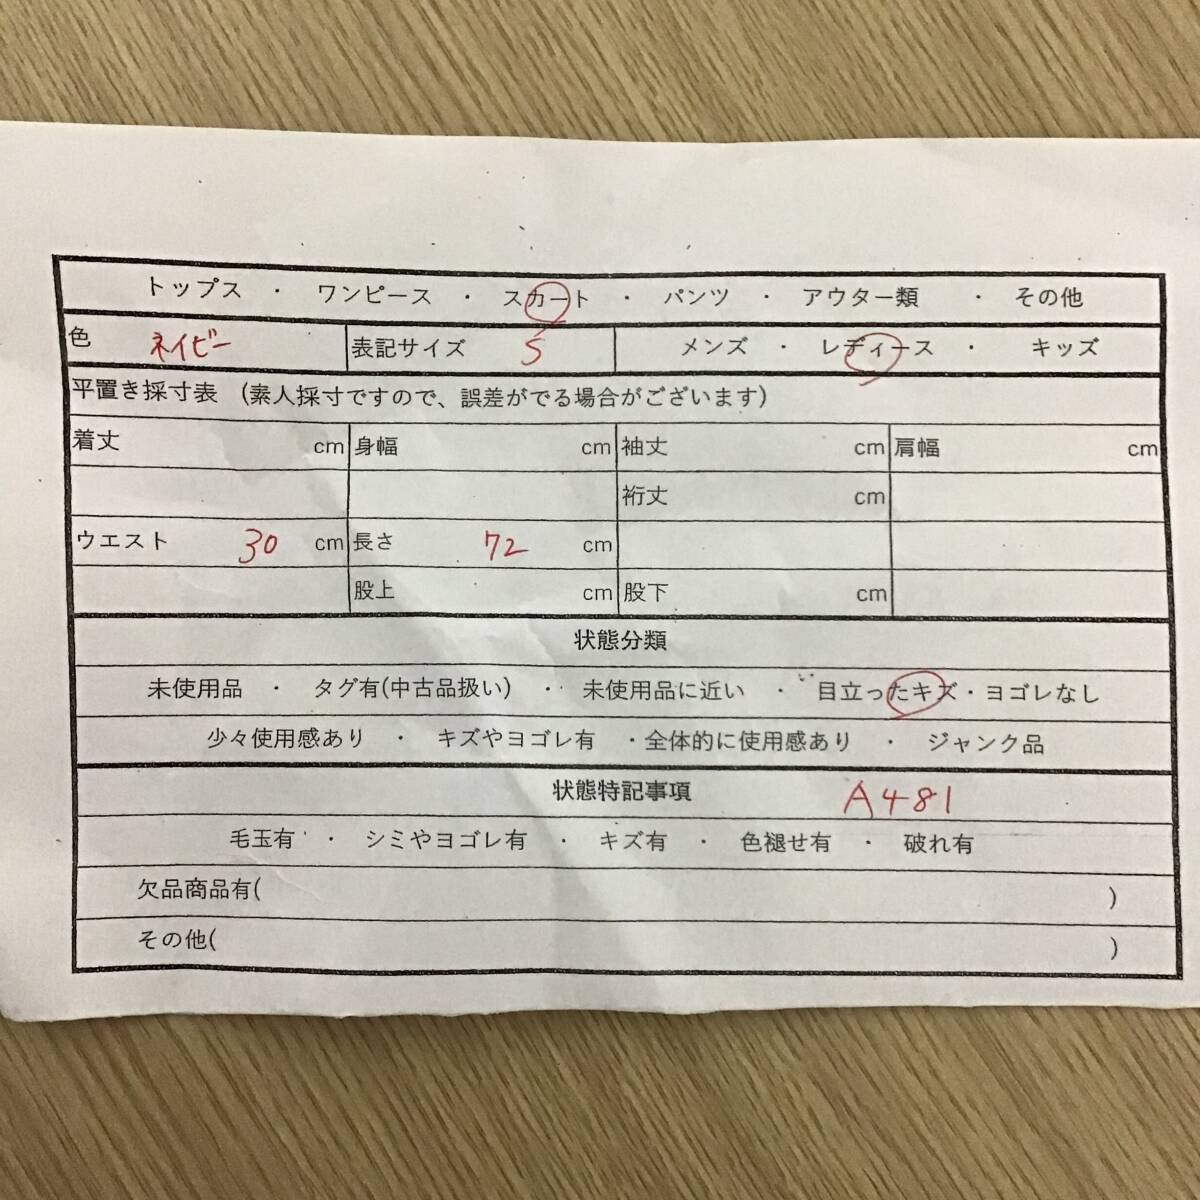 トップス ・ ワンピース ・ スカート ・ パンツ ・ アウター類 ・ その他
色 ネイビー 表記サイズ S メンズ ・ レディース ・ キッズ
平置き採寸表 (素人採寸ですので、誤差がでる場合がございます)
着丈 cm 身幅 cm 袖丈 cm 肩幅 cm
裄丈 cm
ウエスト 30 cm 長さ 72 cm
股上 cm 股下 cm
状態分類
未使用品 ・ タグ有(中古品扱い) ・ 未使用品に近い ・ 目立ったキズ・ヨゴレなし
少々使用感あり ・ キズやヨゴレ有 ・全体的に使用感あり ・ ジャンク品
状態特記事項 A481
毛玉有 ・ シミやヨゴレ有 ・ キズ有 ・ 色褪せ有 ・ 破れ有
欠品商品有( )
その他( )